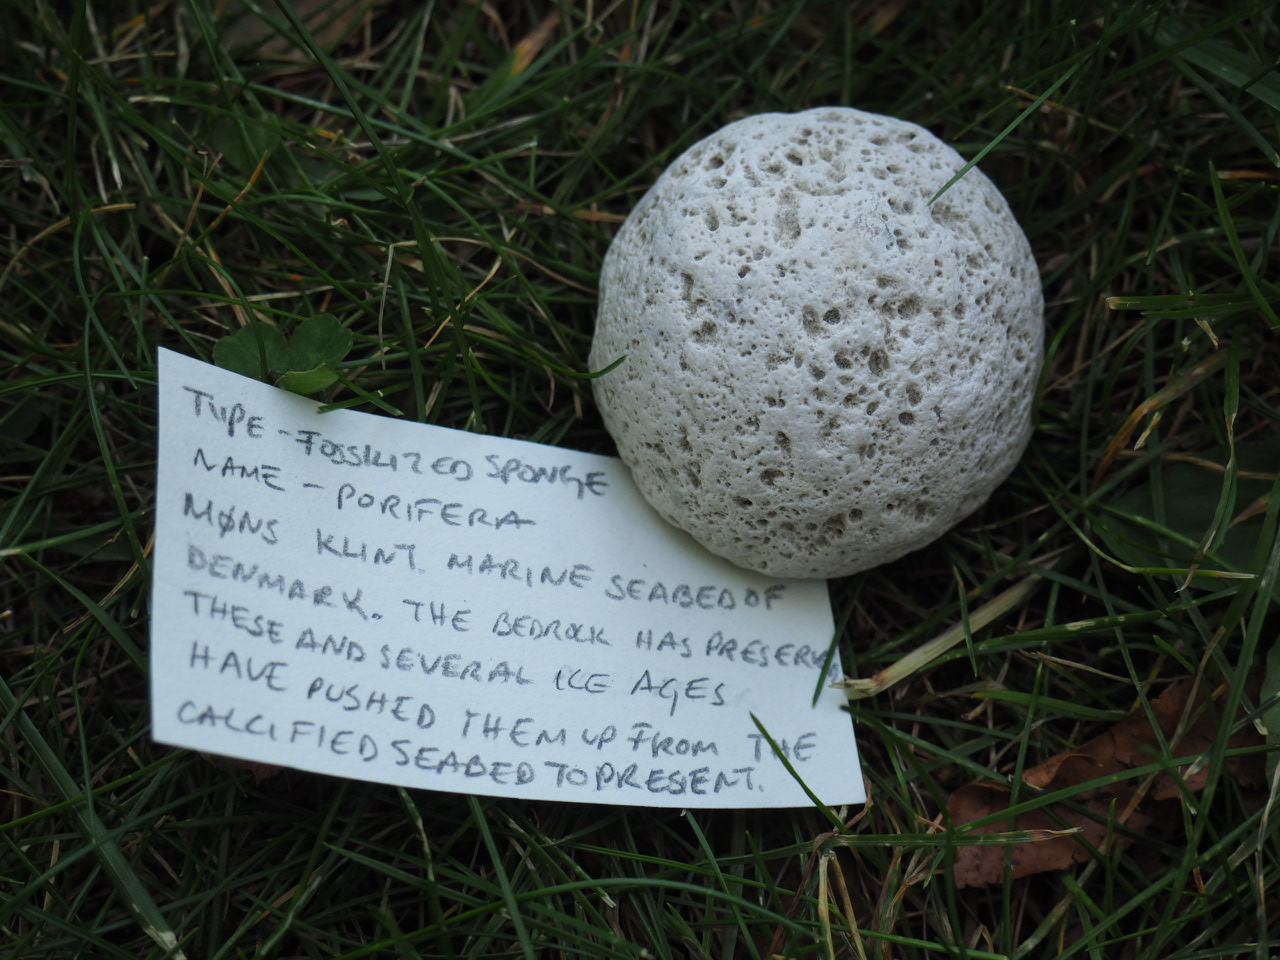 TYPE - FOSSILIZED SPONGE
NAME - PORIFERA
MØNS KLINT. MARINE SEABED OF
DENMARK. THE BEDROCK HAS PRESERV
THESE AND SEVERAL ICE AGES
HAVE PUSHED THEM UP FROM THE
CALCIFIED SEABED TO PRESENT.